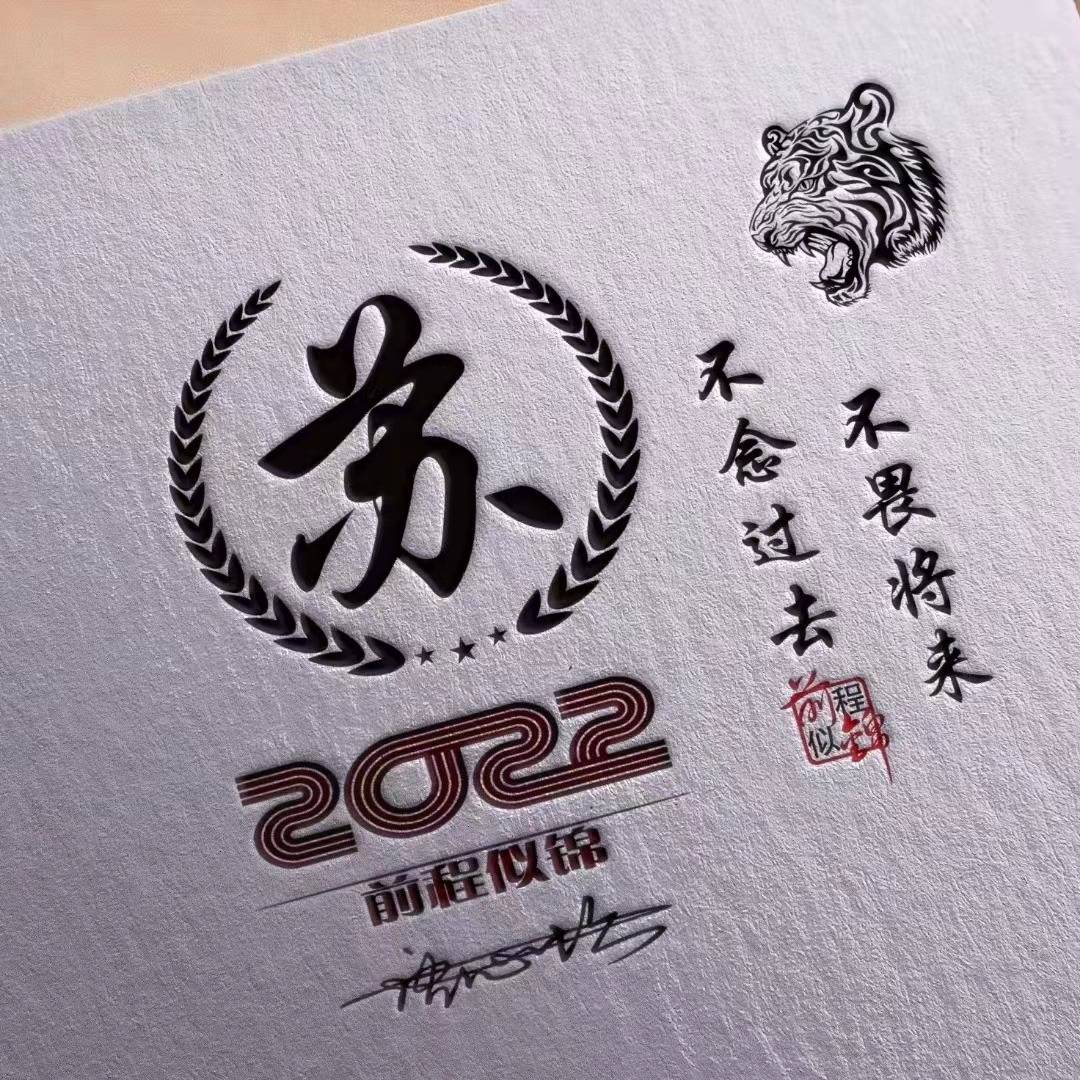 苏
2022
前程似锦
不念过去
不畏将来
前程似锦